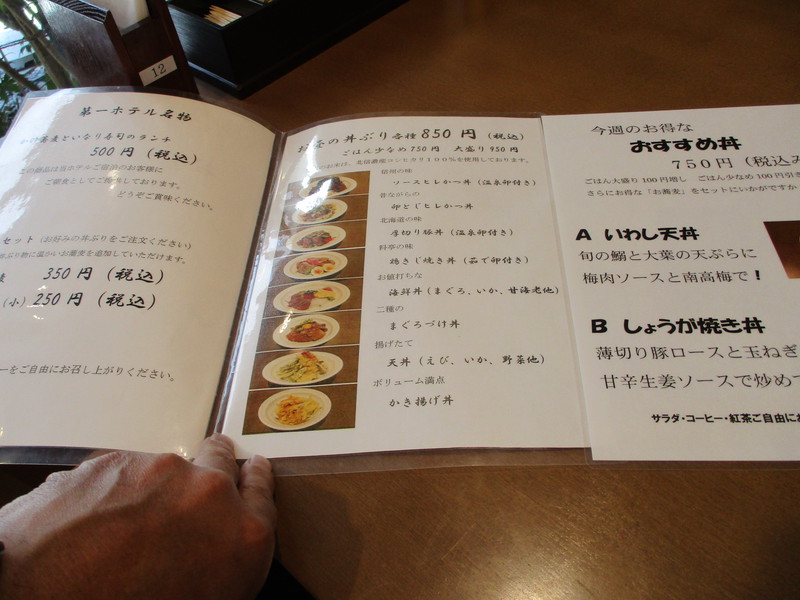 12
第一ホテル名物
かけ蕎麦といなり寿司のランチ
500円（税込）
この商品は当ホテルご宿泊のお客様に
ご昼食としてご提供しております。
どうぞご賞味ください。
セット（お好みの丼ぶりをご注文ください）
丼ぶり物に温かいお蕎麦を追加していただけます。
350円（税込）
（小）250円（税込）
ーをご自由にお召し上がりください。
丼ぶり各種 850円（税込）
ごはん少なめ750円　大盛り950円
お米は、北信濃産コシヒカリ100％を使用しております。
信州の味
ソースヒレかつ丼（温泉卵付き）
昔ながらの
卵とじヒレかつ丼
北海道の味
厚切り豚丼（温泉卵付き）
料亭の味
鶏きじ焼き丼（茹で卵付き）
お値打ちな
海鮮丼（まぐろ、いか、甘海老他）
二種の
まぐろづけ丼
揚げたて
天丼（えび、いか、野菜他）
ボリューム満点
かき揚げ丼
今週のお得な
おすすめ丼
750円（税込み
ごはん大盛り100円増し　ごはん少なめ100円引き
さらにお得な「お蕎麦」をセットにいかがですか
A いわし天丼
旬の鰯と大葉の天ぷらに
梅肉ソースと南高梅で！
B しょうが焼き丼
薄切り豚ロースと玉ねぎ
甘辛生姜ソースで炒めて
サラダ・コーヒー・紅茶ご自由にお